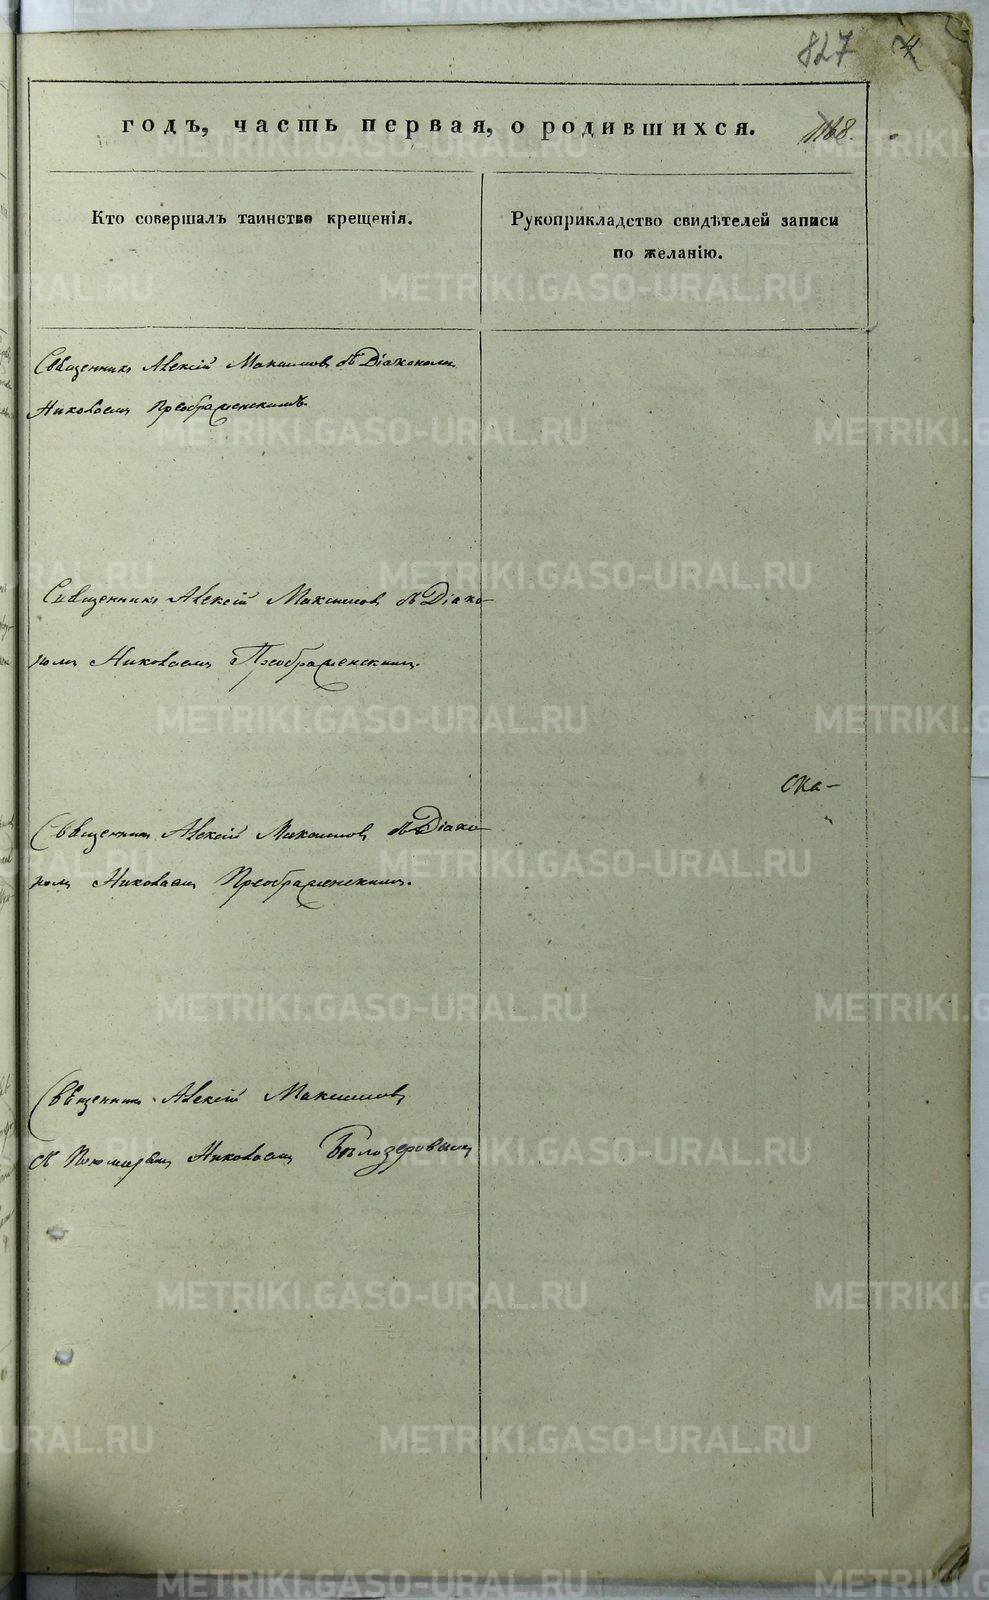 827 4
годъ, часть первая, о родившихся. 1168.
Кто совершалъ таинство крещенія.
Рукоприкладство свидѣтелей записи
по желанію.
Священникъ Алексій Максимовъ съ Діакономъ
Николаемъ Преображенскимъ.
Священникъ Алексій Максимовъ съ Діако-
номъ Николаемъ Преображенскимъ.
ска-
Священникъ Алексій Максимовъ съ Діако-
номъ Николаемъ Преображенскимъ.
Священникъ Алексій Максимовъ
съ Николаемъ Бѣлозеровымъ
METRIKI.GASO-URAL.RU